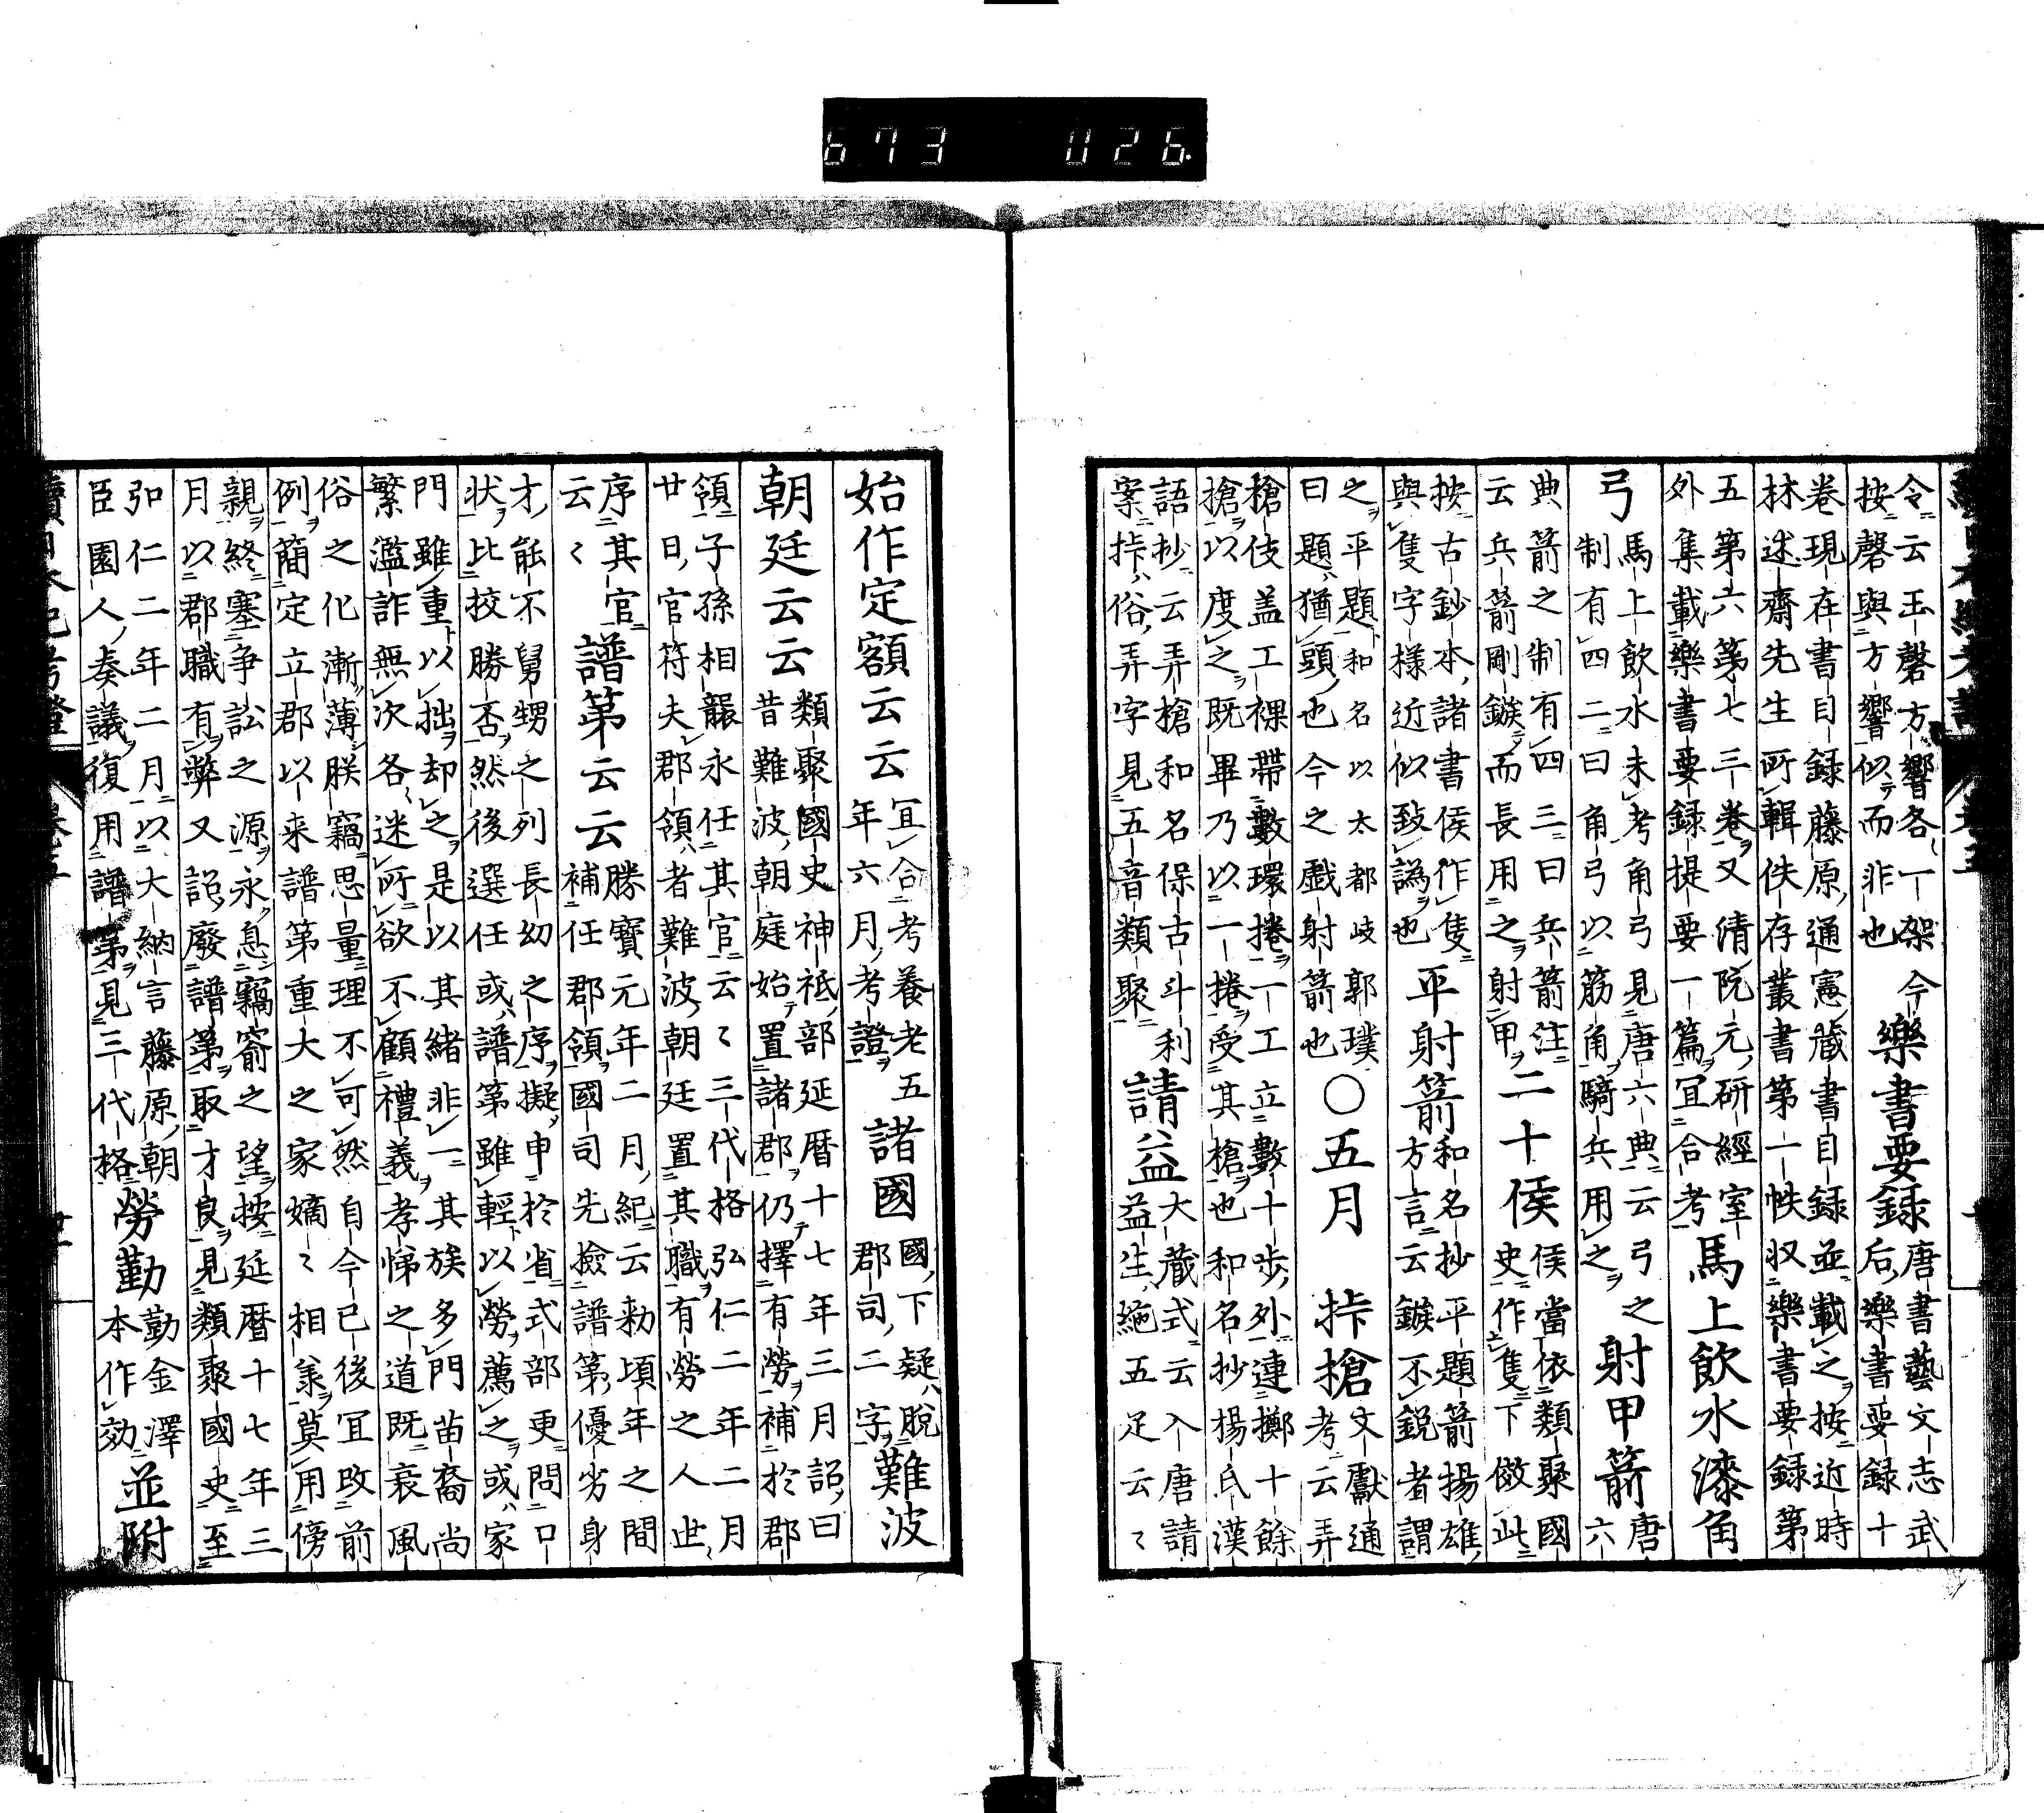 673 026.
令云玉磬方響各一架今
按磬與方響似而非也
樂書要録
唐書藝文志武
后樂書要録十
卷現在書目録藤原通憲藏書目録並載之按近時
林述齋先生所輯佚存叢書第一帙収樂書要録第
五第六第七三卷又清阮元研經室
外集載樂書要録提要一篇冝合考
馬上飲水漆角
弓
馬上飲水未考角弓見唐六典云弓之
制有四二曰角弓以筋角騎兵用之
射甲箭
唐
六
典箭之制有四三曰兵箭注
云兵箭剛鏃而長用之射甲
二十侯
侯當依類聚國
史作隻下傚此
按古鈔本諸書侯作隻
與隻字様近似致譌也
平射箭
和名抄平題箭揚雄
方言云鏃不鋭者謂
之平題和名以太都岐郭璞
曰題猶頭也今之戯射箭也
○五月
挊槍
文獻通
考云弄
槍伎盖工裸帶數環捲一工立數十歩外連擲十餘
槍以度之既畢乃以一捲受其槍也和名抄楊氏漢
語抄云弄槍和名保古斗利
案挊俗弄字見五音類聚
請益
大藏式云入唐請
益生絁五疋云〻
始作定額云云
冝合考養老五
年六月考證
諸國
國下疑脫
郡司二字
難波
朝廷云云
類聚國史神祇部延暦十七年三月詔曰
昔難波朝庭始置諸郡仍擇有勞補於郡
領子孫相襲永任其官云〻三代格弘仁二年二月
廿日官符夫郡領者難波朝廷置其職有勞之人世
序其官
云〻
譜第云云
勝寶元年二月紀云勅頃年之間
補任郡領國司先撿譜第優劣身
才能不舅甥之列長幼之序擬申於省式部更問口
状比挍勝否然後選任或譜第雖輕以勞薦之或家
門雖重以拙却之是以其緒非一其族多門苗裔尚
繁濫詐無次各迷所欲不顧禮義孝悌之道既衰風
俗之化漸薄朕竊思量理不可然自今已後冝改前
例簡定立郡以来譜第重大之家嫡〻相継莫用傍
親終塞争訟之源永息竊窬之望按延暦十七年三
月以郡職有弊又詔廢譜第取才良見類聚國史至
弘仁二年二月以大納言藤原朝
臣園人奏議復用譜第見三代格
勞勤
勤金澤
本作効
並附